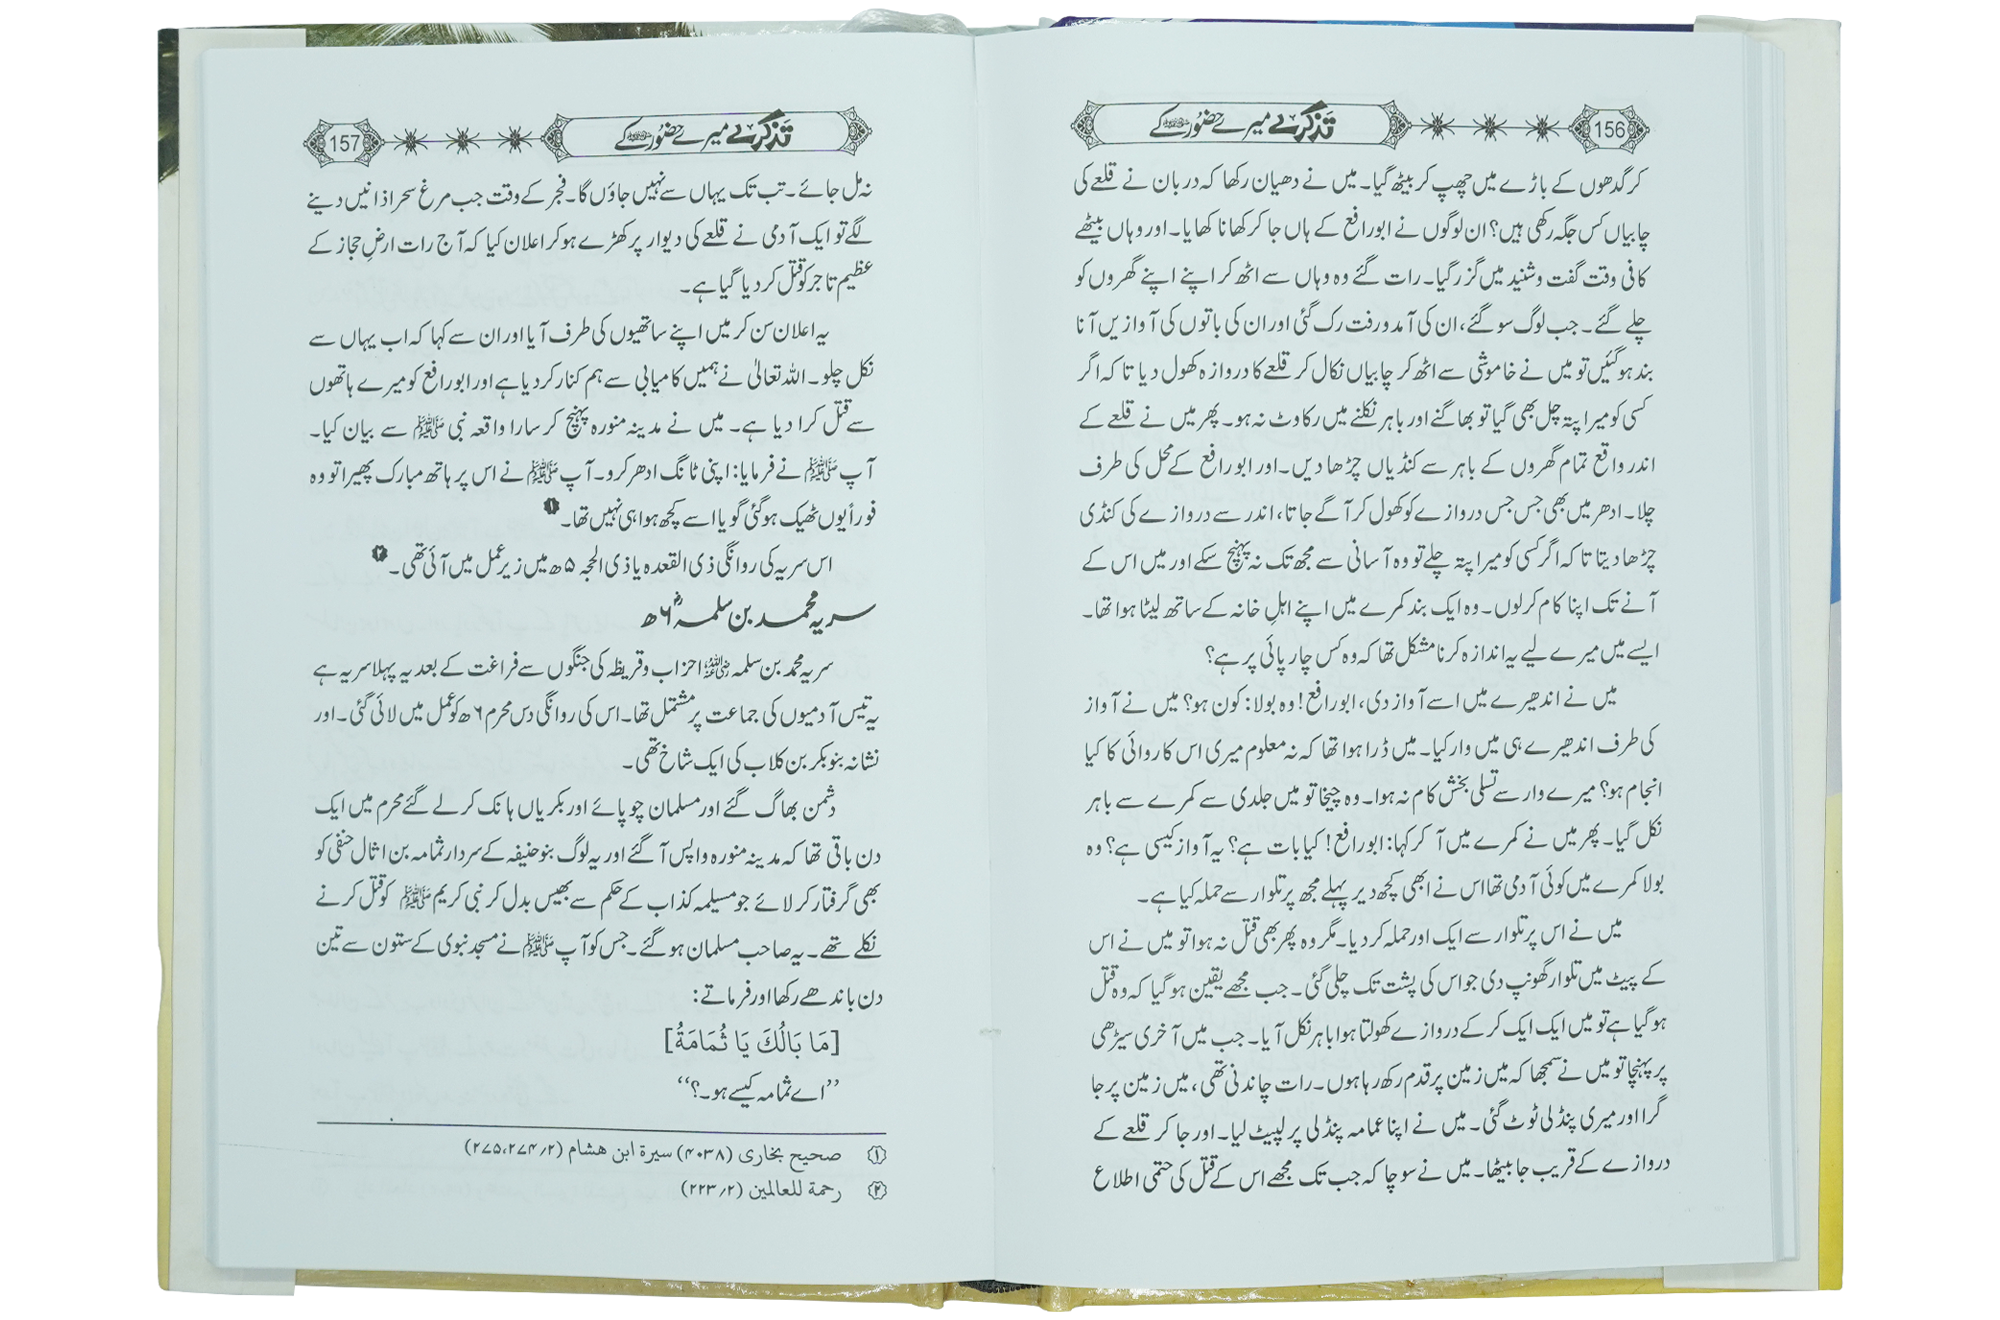 156
تذکرے میرے حضورﷺ کے
کر گدھوں کے باڑے میں چھپ کر بیٹھ گیا۔ میں نے دھیان رکھا کہ دربان نے قلعے کی
چابیاں کس جگہ رکھی ہیں؟ ان لوگوں نے ابورافع کے ہاں جا کر کھانا کھایا۔ اور وہاں بیٹھے
کافی وقت گفت و شنید میں گزر گیا۔ رات گئے وہ وہاں سے اٹھ کر اپنے اپنے گھروں کو
چلے گئے۔ جب لوگ سو گئے، ان کی آمد و رفت رک گئی اور ان کی باتوں کی آوازیں آنا
بند ہو گئیں تو میں نے خاموشی سے اٹھ کر چابیاں نکال کر قلعے کا دروازہ کھول دیا تا کہ اگر
کسی کو میرا پتہ چل بھی گیا تو بھاگنے اور باہر نکلنے میں رکاوٹ نہ ہو۔ پھر میں نے قلعے کے
اندر واقع تمام گھروں کے باہر سے کنڈیاں چڑھا دیں۔ اور ابورافع کے محل کی طرف
چلا۔ ادھر میں بھی جس جس دروازے کو کھول کر آگے جاتا، اندر سے دروازے کی کنڈی
چڑھا دیتا تا کہ اگر کسی کو میرا پتہ چلے تو وہ آسانی سے مجھ تک نہ پہنچ سکے اور میں اس کے
آنے تک اپنا کام کر لوں۔ وہ ایک بند کمرے میں اپنے اہلِ خانہ کے ساتھ لیٹا ہوا تھا۔
ایسے میں میرے لیے یہ اندازہ کرنا مشکل تھا کہ وہ کس چارپائی پر ہے؟
میں نے اندھیرے میں اسے آواز دی، ابورافع! وہ بولا: کون ہو؟ میں نے آواز
کی طرف اندھیرے ہی میں وار کیا۔ میں ڈرا ہوا تھا کہ نہ معلوم میری اس کاروائی کا کیا
انجام ہو؟ میرے وار سے تسلی بخش کام نہ ہوا۔ وہ چیخا تو میں جلدی سے کمرے سے باہر
نکل گیا۔ پھر میں نے کمرے میں آ کر کہا: ابورافع! کیا بات ہے؟ یہ آواز کیسی ہے؟ وہ
بولا کمرے میں کوئی آدمی تھا اس نے ابھی کچھ دیر پہلے مجھ پر تلوار سے حملہ کیا ہے۔
میں نے اس پر تلوار سے ایک اور حملہ کر دیا۔ مگر وہ پھر بھی قتل نہ ہوا تو میں نے اس
کے پیٹ میں تلوار گھونپ دی جو اس کی پشت تک چلی گئی۔ جب مجھے یقین ہو گیا کہ وہ قتل
ہو گیا ہے تو میں ایک ایک کر کے دروازے کھولتا ہوا باہر نکل آیا۔ جب میں آخری سیڑھی
پر پہنچا تو میں نے سمجھا کہ میں زمین پر قدم رکھ رہا ہوں۔ رات چاندنی تھی، میں زمین پر جا
گرا اور میری پنڈلی ٹوٹ گئی۔ میں نے اپنا عمامہ پنڈلی پر لپیٹ لیا۔ اور جا کر قلعے کے
دروازے کے قریب جا بیٹھا۔ میں نے سوچا کہ جب تک مجھے اس کے قتل کی حتمی اطلاع
تذکرے میرے حضورﷺ کے
157
نہ مل جائے۔ تب تک یہاں سے نہیں جاؤں گا۔ فجر کے وقت جب مرغ سحر اذانیں دینے
لگے تو ایک آدمی نے قلعے کی دیوار پر کھڑے ہو کر اعلان کیا کہ آج رات ارضِ حجاز کے
عظیم تاجر کو قتل کر دیا گیا ہے۔
یہ اعلان سن کر میں اپنے ساتھیوں کی طرف آیا اور ان سے کہا کہ اب یہاں سے
نکل چلو۔ اللہ تعالیٰ نے ہمیں کامیابی سے ہم کنار کر دیا ہے اور ابورافع کو میرے ہاتھوں
سے قتل کرا دیا ہے۔ میں نے مدینہ منورہ پہنچ کر سارا واقعہ نبی ﷺ سے بیان کیا۔
آپ ﷺ نے فرمایا: اپنی ٹانگ ادھر کرو۔ آپ ﷺ نے اس پر ہاتھ مبارک پھیرا تو وہ
فوراً یوں ٹھیک ہو گئی گویا اسے کچھ ہوا ہی نہیں تھا۔ ۱
اس سریہ کی روانگی ذی القعدہ یا ذی الحجہ ۵ھ میں زیر عمل میں آئی تھی۔ ۲
سریہ محمد بن سلمہؓ ۶ھ
سریہ محمد بن سلمہ رضی اللہ عنہ احزاب و قریظہ کی جنگوں سے فراغت کے بعد یہ پہلا سریہ ہے
یہ تیس آدمیوں کی جماعت پر مشتمل تھا۔ اس کی روانگی دس محرم ۶ھ کو عمل میں لائی گئی۔ اور
نشانہ بنو بکر بن کلاب کی ایک شاخ تھی۔
دشمن بھاگ گئے اور مسلمان چوپائے اور بکریاں ہانک کر لے گئے محرم میں ایک
دن باقی تھا کہ مدینہ منورہ واپس آ گئے اور یہ لوگ بنو حنیفہ کے سردار ثمامہ بن اثال حنفی کو
بھی گرفتار کر لائے جو مسیلمہ کذاب کے حکم سے بھیس بدل کر نبی کریم ﷺ کو قتل کرنے
نکلے تھے۔ یہ صاحب مسلمان ہو گئے۔ جس کو آپ ﷺ نے مسجد نبوی کے ستون سے تین
دن باندھے رکھا اور فرماتے:
[مَا بَالُكَ يَا ثُمَامَةُ]
’’اے ثمامہ کیسے ہو۔؟‘‘
۱ صحیح بخاری (۴۰۳۸) سیرۃ ابن ھشام (۲؍۲۷۴،۲۷۵)
۲ رحمة للعالمین (۲؍۲۲۳)